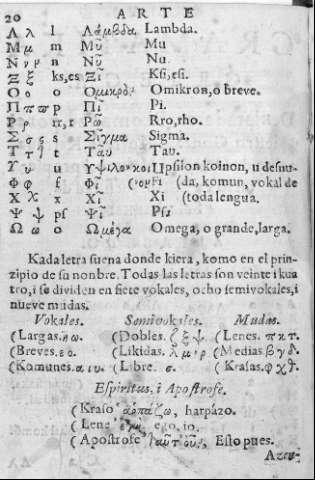 20 ARTE
Λ λ l Λάμβδα Lambda.
Μ μ m Μῦ Mu
Ν ν n Νῦ Nu.
Ξ ξ ks,es Ξῖ Ksi,esi.
Ο ο o Ομικρὸ Omikron,o breve.
Π π p Πῖ Pi.
Ρ ρ rr,r Ρῶ Rro,rho.
Σ σ ς s Σίγμα Sigma.
Τ τ t Ταῦ Tau.
Υ υ u Υψιλον κοι Upsilon koinon, u desnu-
Φ φ f Φῖ (νον Fi (da, komun, vokal de
Χ χ x Χῖ Xi (toda lengua.
Ψ ψ ps Ψῖ Psi
Ω ω o Ωμέγα Omega, o grande, larga.
Kada letra suena donde kiera, komo en el prin-
zipio de su nonbre. Todas las letras son veinte i kua
tro, i se dividen en siete vokales, ocho semivokales, i
nueve mudas.
Vokales. Semivokales. Mudas.
(Largas. η ω. (Dobles. ζ ξ ψ. (Lenes. π κ τ.
(Breves. ε ο. (Likidas. λ μ ν ρ (Medias β γ δ.
(Komunes. α ι υ. (Libre. σ. (Krasas. φ χ θ.
Espiritus, i Apostrofe.
(Kraso ἁρπάζω, harpázo.
(Lene ἐγώ, ego, io.
(Apostrofe Esto pues.